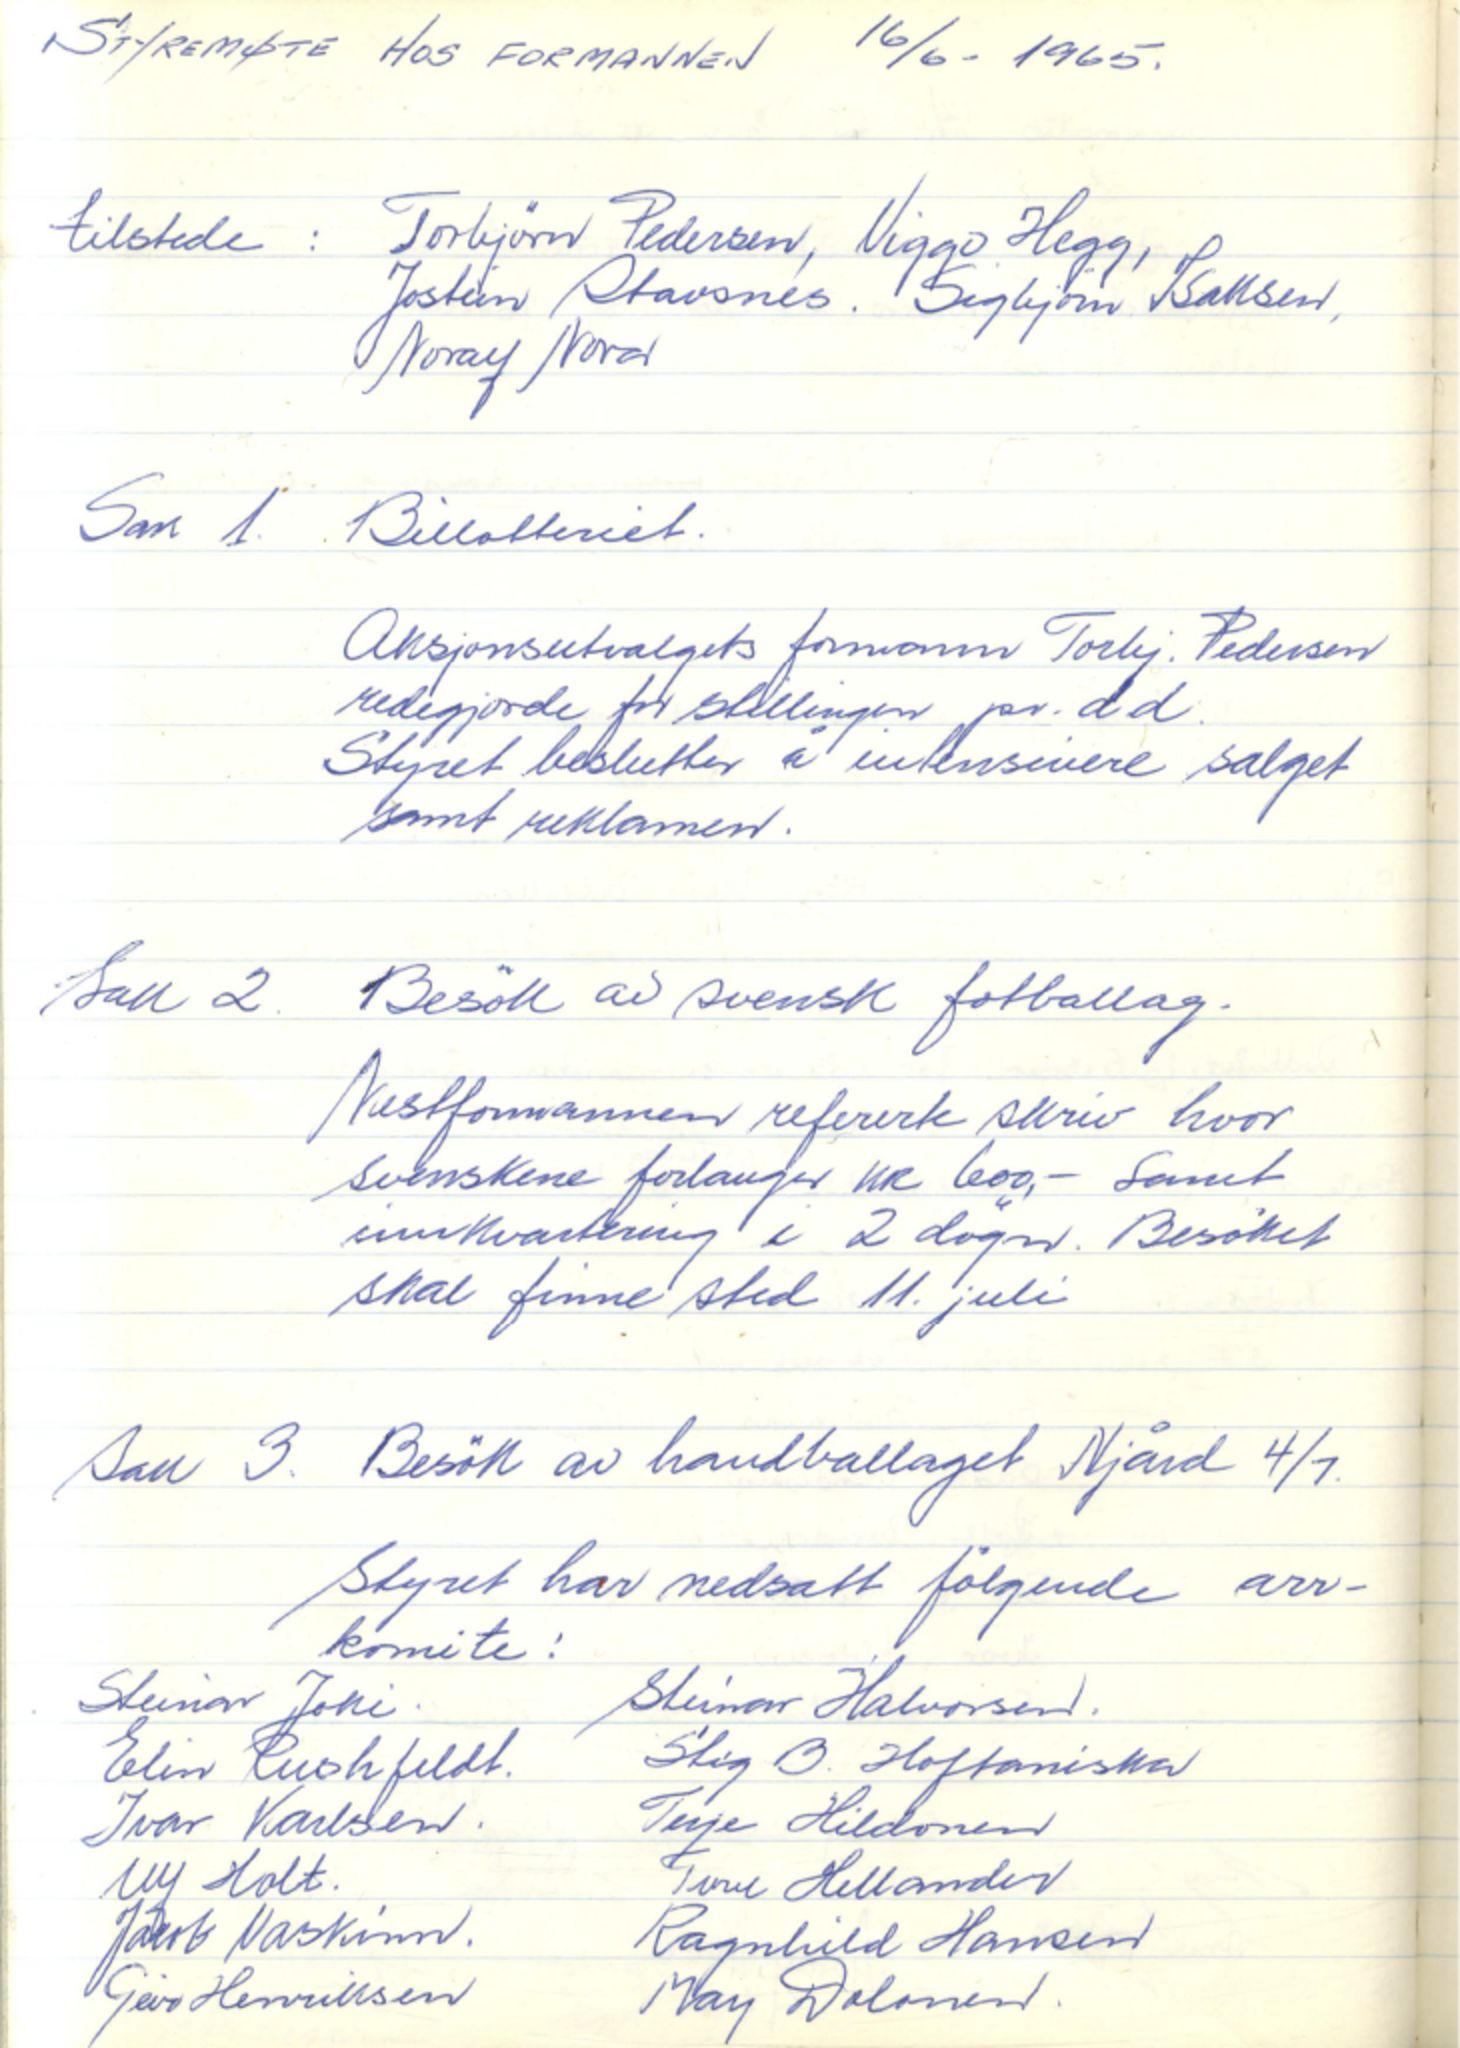 STYREMØTE HOS FORMANNEN 16/6 - 1965.
tilstede : Torbjörn Pedersen, Viggo Hegg,
Jostein Stavsnes. Sigbjörn Isaksen,
Noralf Nora
Sak 1. Billotteriet.
Aksjonsutvalgets formann Torbj. Pedersen
redegjorde for stillingen pr. d d.
Styret beslutter å intensivere salget
samt reklamen.
Sak 2. Besök av svensk fotballag.
Nestformannen refererte skriv hvor
svenskene forlanger kr 600,- samt
innkvartering i 2 dögn. Besöket
skal finne sted 11. juli
Sak 3. Besök av handballaget Njård 4/7.
Styret har nedsatt fölgende arr-
komite:
Steinar Joki. Steinar Halvorsen.
Elin Rushfeldt. Stig B. Hoftaniska
Ivar Karlsen. Terje Hildonen
Ulf Holt. Tove Hellander
Jakob Vaskinn. Ragnhild Hansen
Henriksen May Dolonen.